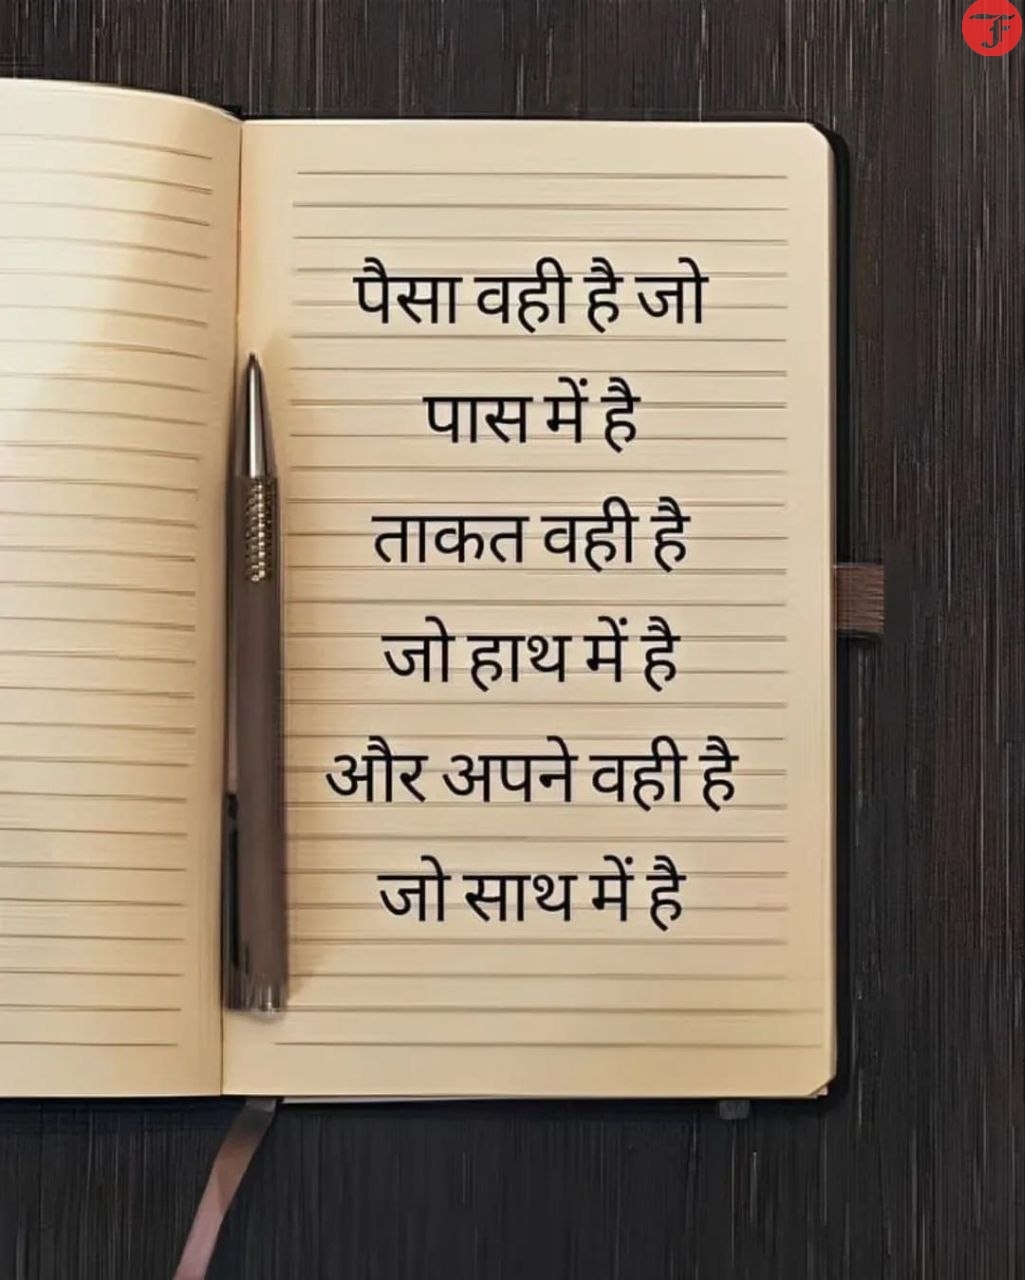 पैसा वही है जो
पास में है
ताकत वही है
जो हाथ में है
और अपने वही है
जो साथ में है